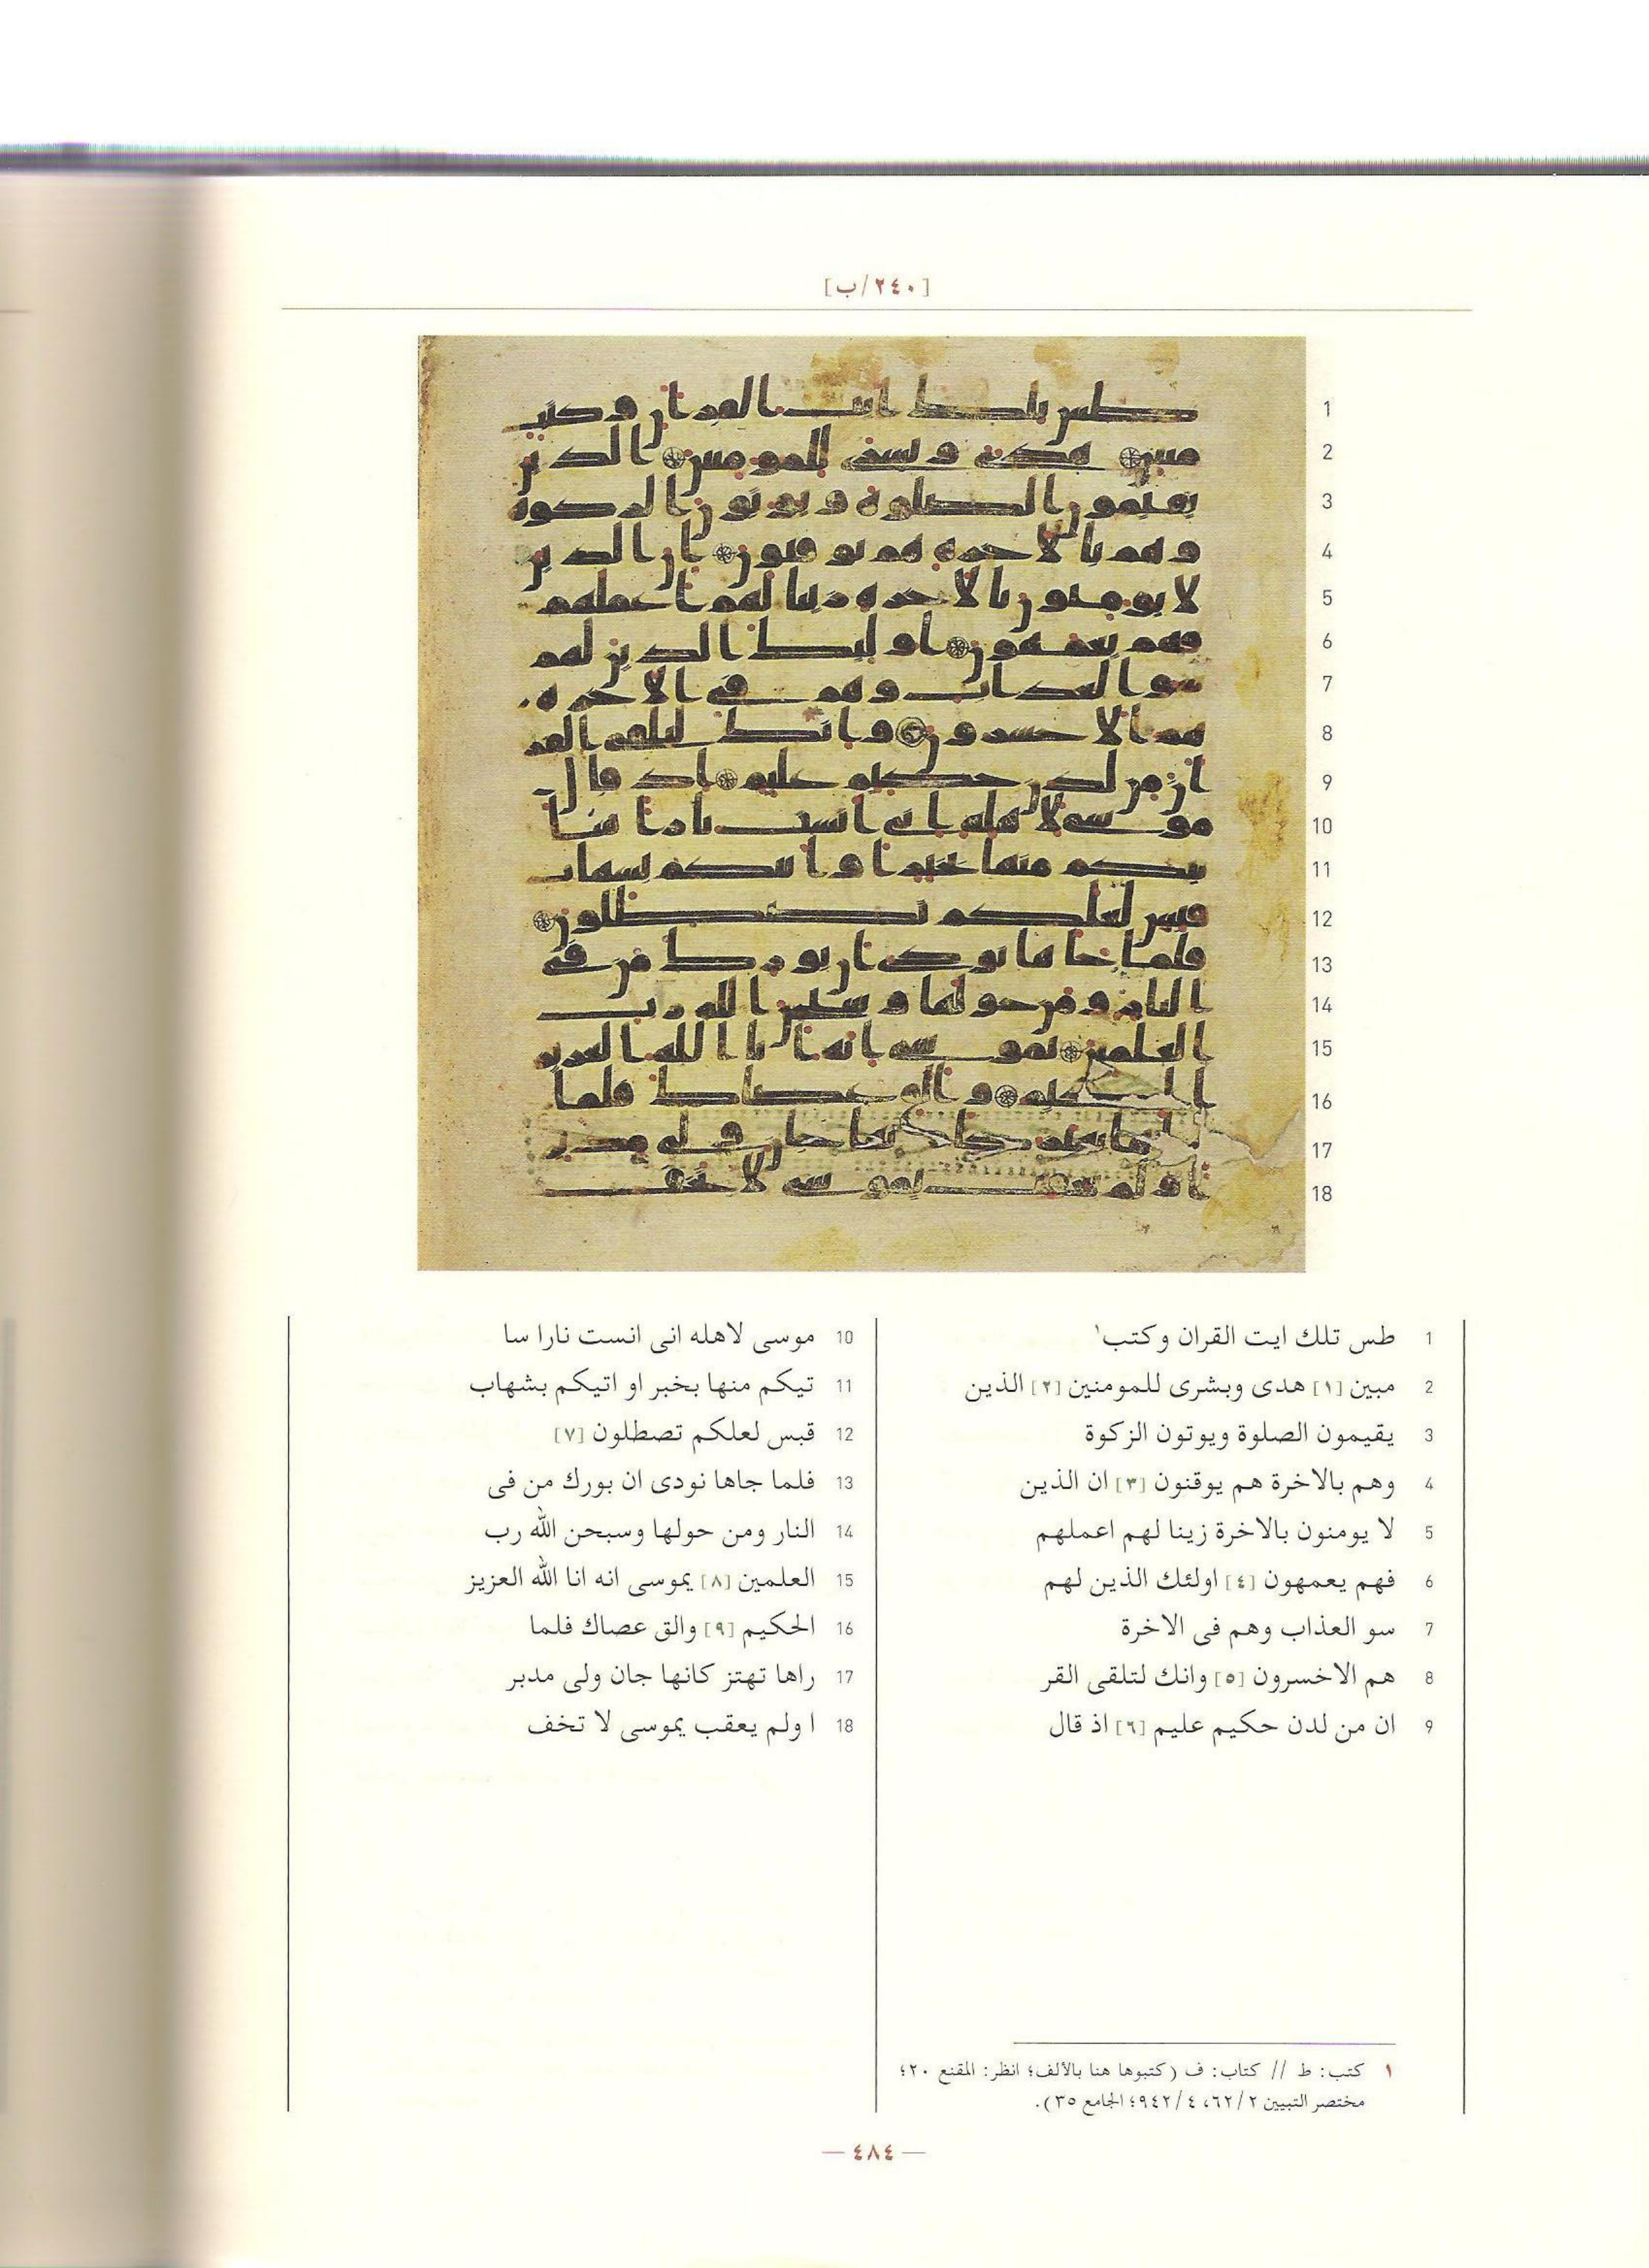 [٢٤٠/ب]
1
2
3
4
5
6
7
8
9
10
11
12
13
14
15
16
17
18
1 طس تلك ايت القران وكتب١
2 مبين [١] هدى وبشرى للمومنين [٢] الذين
3 يقيمون الصلوة ويوتون الزكوة
4 وهم بالاخرة هم يوقنون [٣] ان الذين
5 لا يومنون بالاخرة زينا لهم اعملهم
6 فهم يعمهون [٤] اولئك الذين لهم
7 سو العذاب وهم فى الاخرة
8 هم الاخسرون [٥] وانك لتلقى القر
9 ان من لدن حكيم عليم [٦] اذ قال
10 موسى لاهله انى انست نارا سا
11 تيكم منها بخبر او اتيكم بشهاب
12 قبس لعلكم تصطلون [٧]
13 فلما جاها نودى ان بورك من فى
14 النار ومن حولها وسبحن الله رب
15 العلمين [٨] يموسى انه انا الله العزيز
16 الحكيم [٩] والق عصاك فلما
17 راها تهتز كانها جان ولى مدبر
18 ا ولم يعقب يموسى لا تخف
١ كتب: ط // كتاب: ف (كتبوها هنا بالألف؛ انظر: المقنع ٢٠؛
مختصر التبيين ٦٢/٢، ٩٤٢/٤؛ الجامع ٣٥).
— ٤٨٤ —